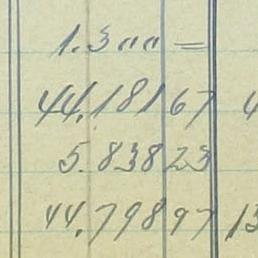 1.3"" =
44.18167 4
5.83823
44.79897 13